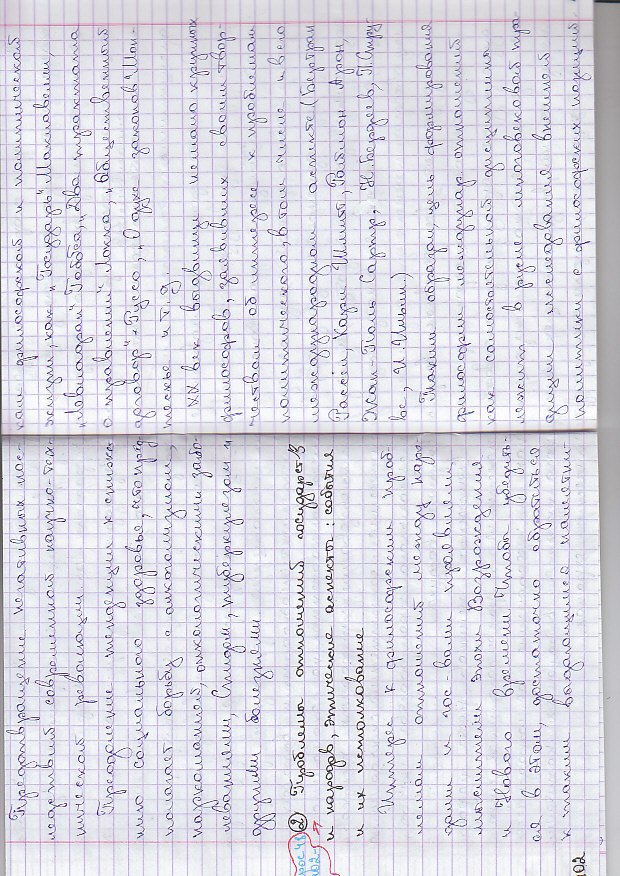 Предотвращение негативных пос-
ледствий современной научно-тех-
нической революции.
Преодоление тенденции к сниже-
нию социального здоровья, что пред-
полагает борьбу с алкоголизмом,
наркоманией, онкологическими забо-
леваниями, Спидом, туберкулезом и
другими болезнями
② Проблемы отношений государств
и народов, этические аспекты: события
и их истолкование
Интерес к философским проб-
лемам отношений между наро-
дами и государствами проявляли
мыслители эпохи Возрождения
и Нового времени. Чтобы убедить-
ся в этом, достаточно обратиться
к таким выдающимся памятни-
102
кам философской и политической
мысли, как „Государь" Макиавелли,
„Левиафан" Гоббса, „Два трактата
о правлении" Локка, „Общественный
договор" Руссо, „О духе законов" Мон-
тескье и т.д.
XX век выдвинул немало крупных
философов, заявивших своим твор-
чеством об интересе к проблемам
политического, в том числе и в его
международном аспекте (Бертран
Рассел, Карл Шмитт, Раймон Арон,
Жан-Поль Сартр, Н. Бердяев, П. Стру-
ве, И. Ильин.)
Таким образом, цель формирования
философии междунар отношений
как самостоятельной дисциплины
лежит в русле многовековой тра-
диции исследования внешней
политики с философских позиций